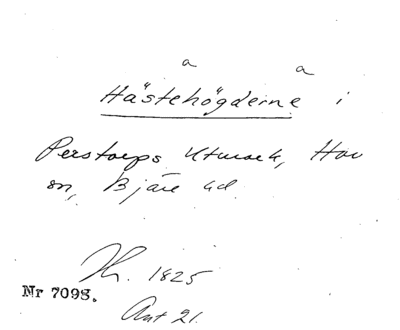 a a
Hästehögderne i
Perstorps Utmark, Hov
sn, Bjäre hd
Kh. 1825
Nr 7098.
Akt 21.